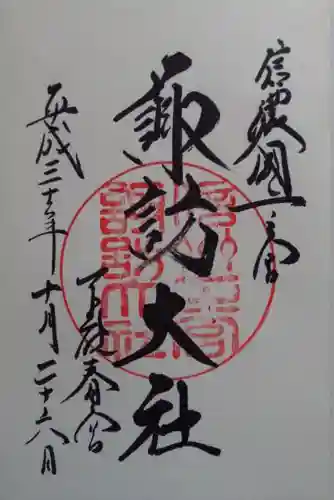 信濃國一之宮
諏訪大社
下社春宮
平成三十年十月二十六日